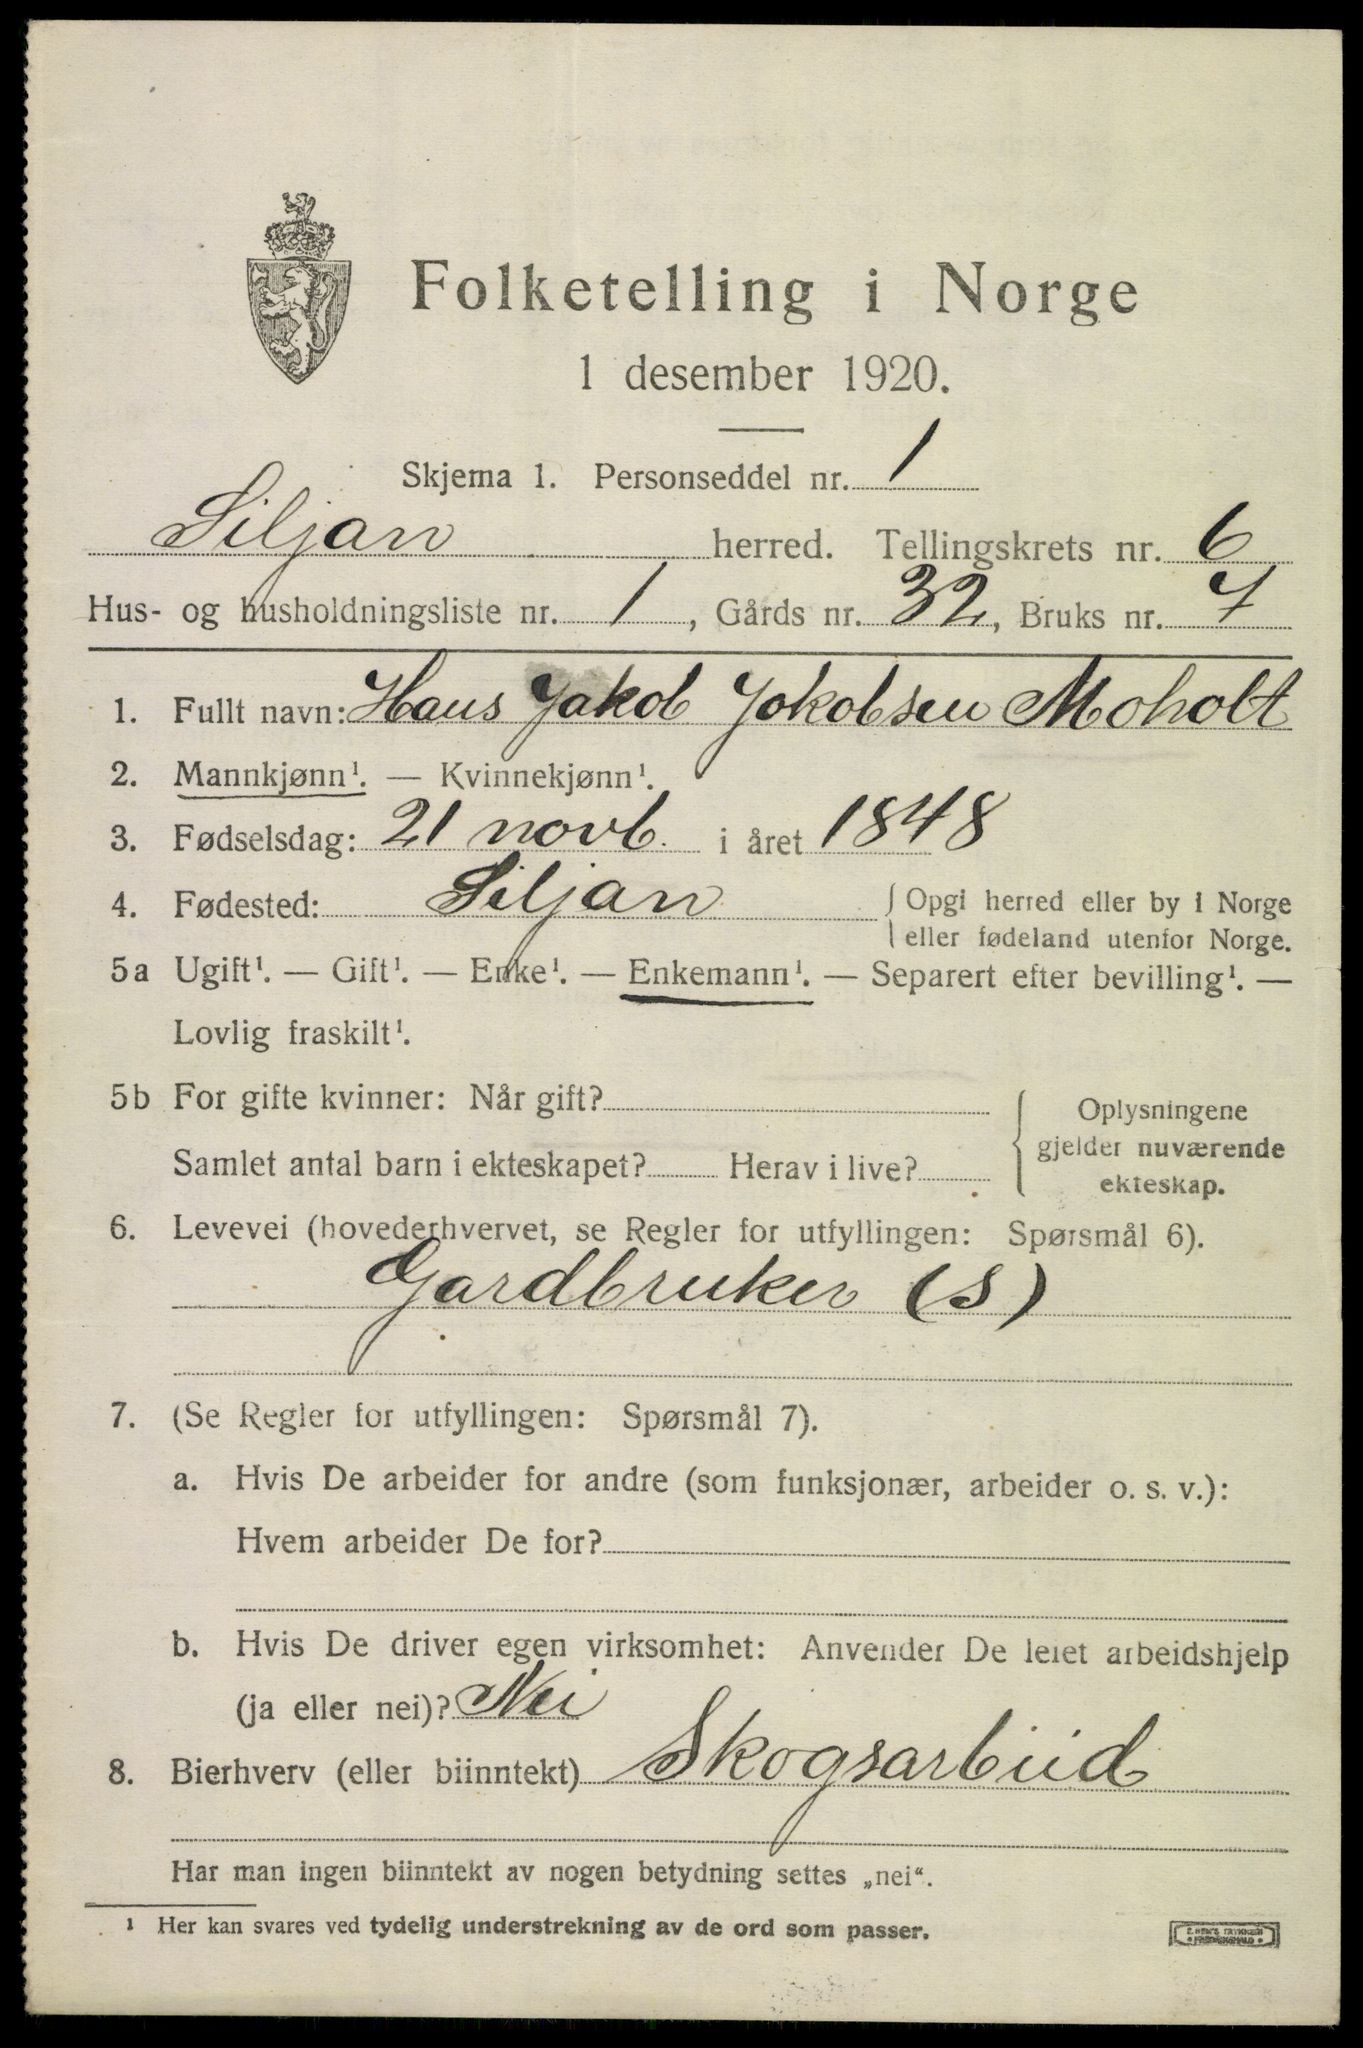 Folketelling i Norge
1 desember 1920.
Skjema 1. Personseddel nr. 1
Siljan herred. Tellingskrets nr. 6
Hus- og husholdningsliste nr. 1, Gårds nr. 32, Bruks nr. 7
1. Fullt navn: Hans Jakob Jakobsen Moholt
2. Mannkjønn¹. — Kvinnekjønn¹.
3. Fødselsdag: 21 novb. i året 1848
4. Fødested: Siljan { Opgi herred eller by i Norge
eller fødeland utenfor Norge.
5a Ugift¹. — Gift¹. — Enke¹. — Enkemann¹. — Separert efter bevilling¹. —
Lovlig fraskilt¹.
5b For gifte kvinner: Når gift?
Samlet antal barn i ekteskapet? Herav i live?
{ Oplysningene
gjelder nuværende
ekteskap.
6. Levevei (hovederhvervet, se Regler for utfyllingen: Spørsmål 6).
Gardbruker (S)
7. (Se Regler for utfyllingen: Spørsmål 7).
a. Hvis De arbeider for andre (som funksjonær, arbeider o. s. v.):
Hvem arbeider De for?
b. Hvis De driver egen virksomhet: Anvender De leiet arbeidshjelp
(ja eller nei)? Nei
8. Bierhverv (eller biinntekt) Skogsarbeid
Har man ingen biinntekt av nogen betydning settes „nei“.
¹ Her kan svares ved tydelig understrekning av de ord som passer.